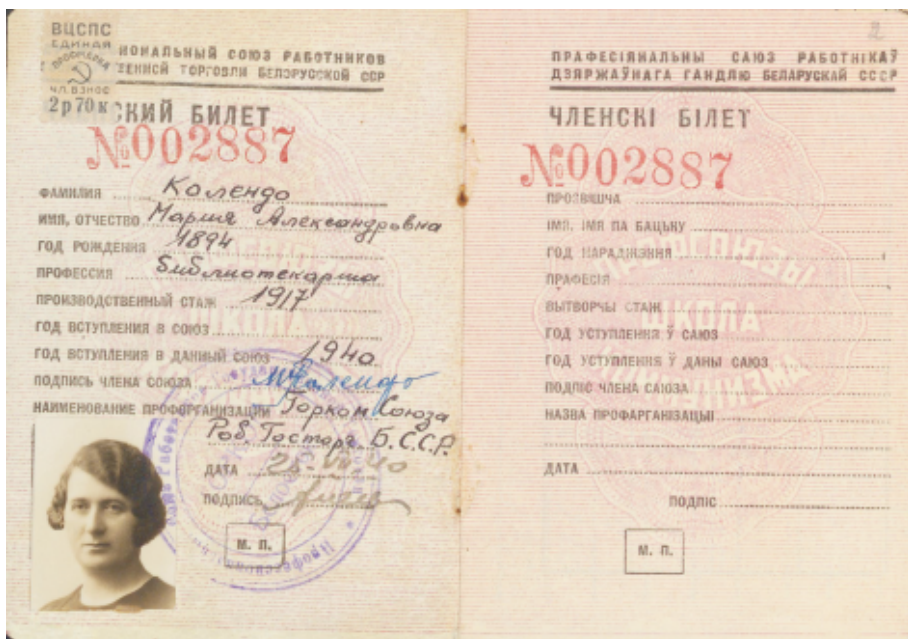 ВЦСПС
ЕДИНАЯ
ЧЛ. ВЗНОС
2 р 70 к
ИОНАЛЬНЫЙ СОЮЗ РАБОТНИКОВ
ВЕННОЙ ТОРГОВЛИ БЕЛОРУССКОЙ ССР
СКИЙ БИЛЕТ
№002887
ФАМИЛИЯ Календо
ИМЯ, ОТЧЕСТВО Мария Александровна
ГОД РОЖДЕНИЯ 1894
ПРОФЕССИЯ библиотекарша
ПРОИЗВОДСТВЕННЫЙ СТАЖ 1917
ГОД ВСТУПЛЕНИЯ В СОЮЗ
ГОД ВСТУПЛЕНИЯ В ДАННЫЙ СОЮЗ 1940
ПОДПИСЬ ЧЛЕНА СОЮЗА МКалендо
НАИМЕНОВАНИЕ ПРОФОРГАНИЗАЦИИ Горком Союза
Раб. Госторг. Б.С.С.Р.
ДАТА
ПОДПИСЬ
М. П.
2
ПРАФЕСІЯНАЛЬНЫ САЮЗ РАБОТНІКАЎ
ДЗЯРЖАЎНАГА ГАНДЛЮ БЕЛАРУСКАЙ СССР
ЧЛЕНСКІ БІЛЕТ
№002887
ПРОЗВІШЧА
ІМЯ, ІМЯ ПА БАЦЬКУ
ГОД НАРАДЖЭННЯ
ПРАФЕСІЯ
ВЫТВОРЧЫ СТАЖ
ГОД УСТУПЛЕННЯ Ў САЮЗ
ГОД УСТУПЛЕННЯ Ў ДАНЫ САЮЗ
ПОДПІС ЧЛЕНА САЮЗА
НАЗВА ПРОФАРГАНІЗАЦЫІ
ДАТА
ПОДПІС
М. П.